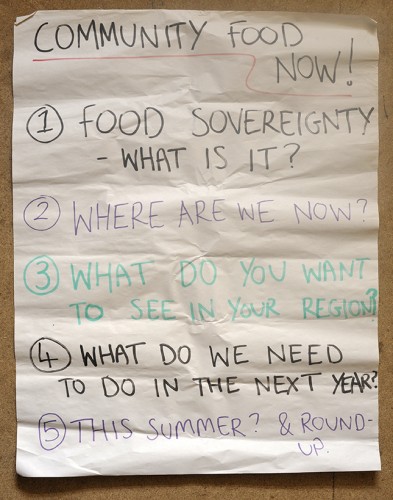 COMMUNITY FOOD
NOW!
① FOOD SOVEREIGNTY
- WHAT IS IT?
② WHERE ARE WE NOW?
③ WHAT DO YOU WANT
TO SEE IN YOUR REGION?
④ WHAT DO WE NEED
TO DO IN THE NEXT YEAR?
⑤ THIS SUMMER? & ROUND-
UP.